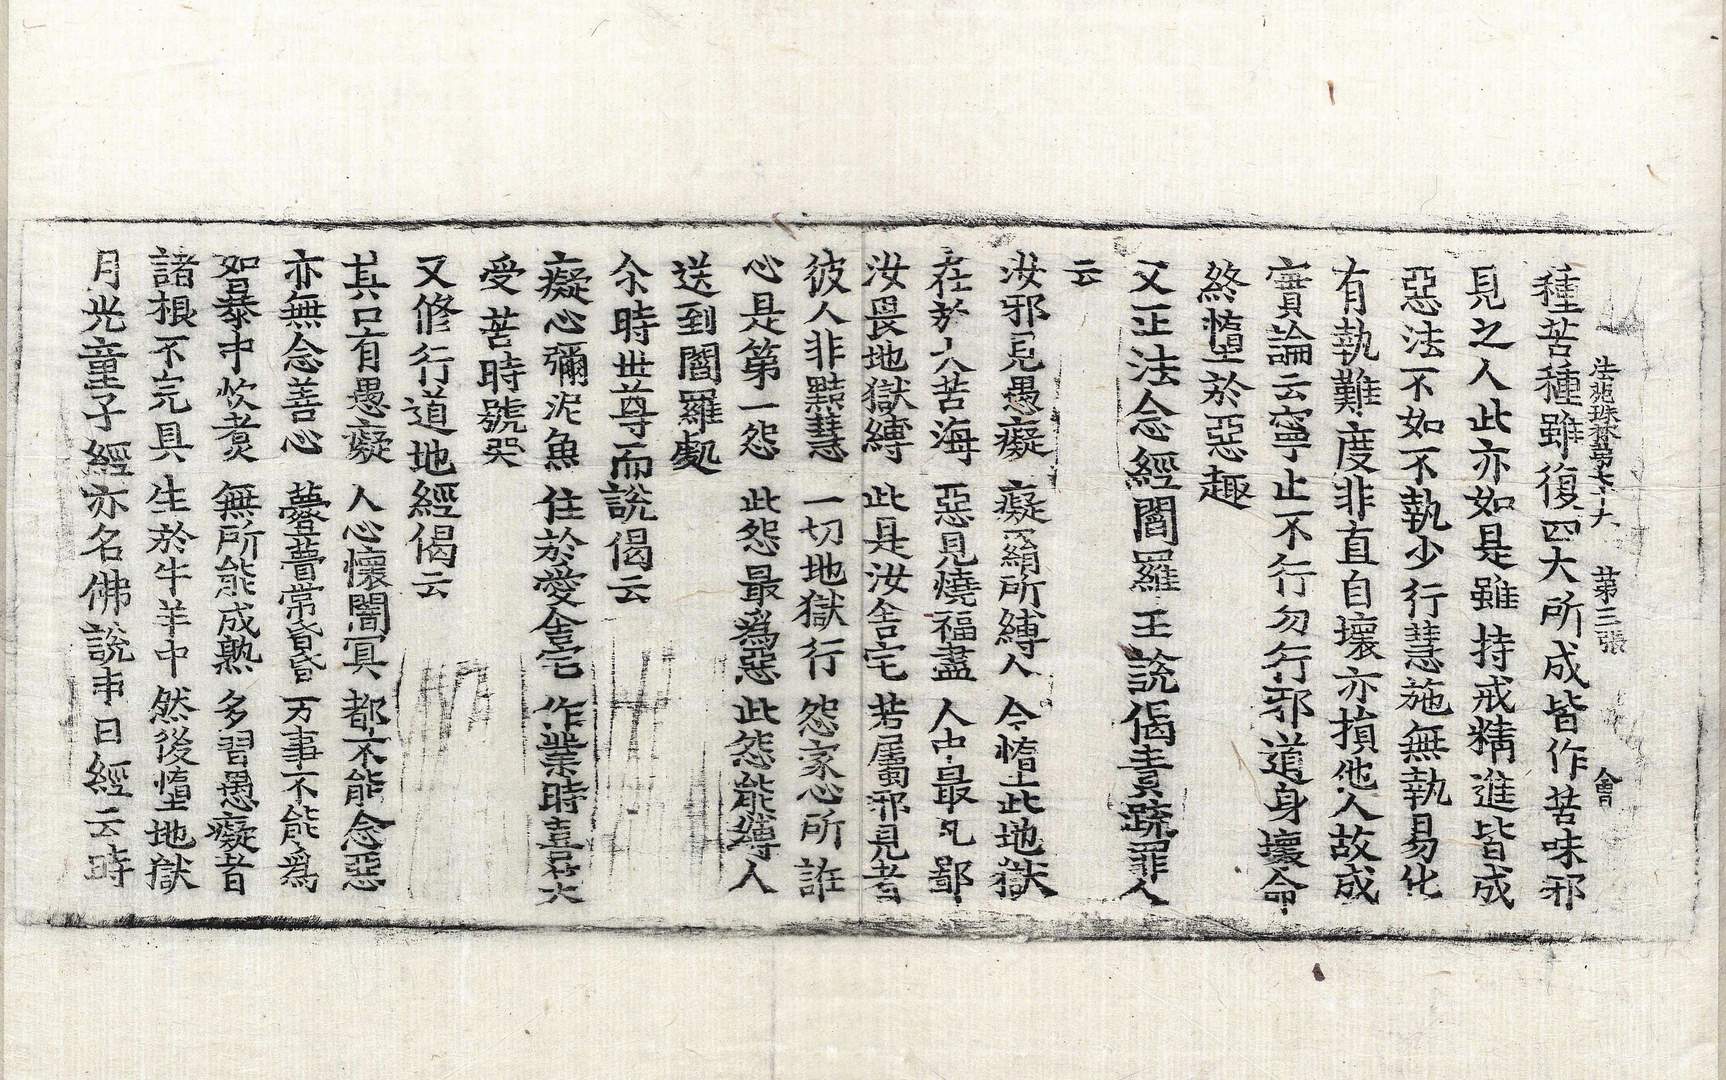 法苑珠林第七十九 第三張 會
種苦種雖復四大所成皆作苦味邪
見之人此亦如是雖持戒精進皆成
惡法不如不執少行慧施無執易化
有執難度非直自壞亦損他人故成
實論云寧止不行勿行邪道身壞命
終墮於惡趣
又正法念經閻羅王說偈責疏罪人
云
汝邪見愚癡 癡羂所縛人 今墮此地獄
在於大苦海 惡見燒福盡 人中最凡鄙
汝畏地獄縛 此是汝舍宅 若屬邪見者
彼人非黠慧 一切地獄行 怨家心所誑
心是第一怨 此怨最爲惡 此怨能縛人
送到閻羅處
尒時世尊而說偈云
癡心彌泥魚 住於愛舍宅 作業時喜笑
受苦時號哭
又修行道地經偈云
其只有愚癡 人心懷闇冥 都不能念惡
亦無念善心 矒瞢常昏昏 万事不能爲
如㬥中炊煮 無所能成熟 多習愚癡者
諸根不完具 生於牛羊中 然後墮地獄
月光童子經亦名佛說申日經云時